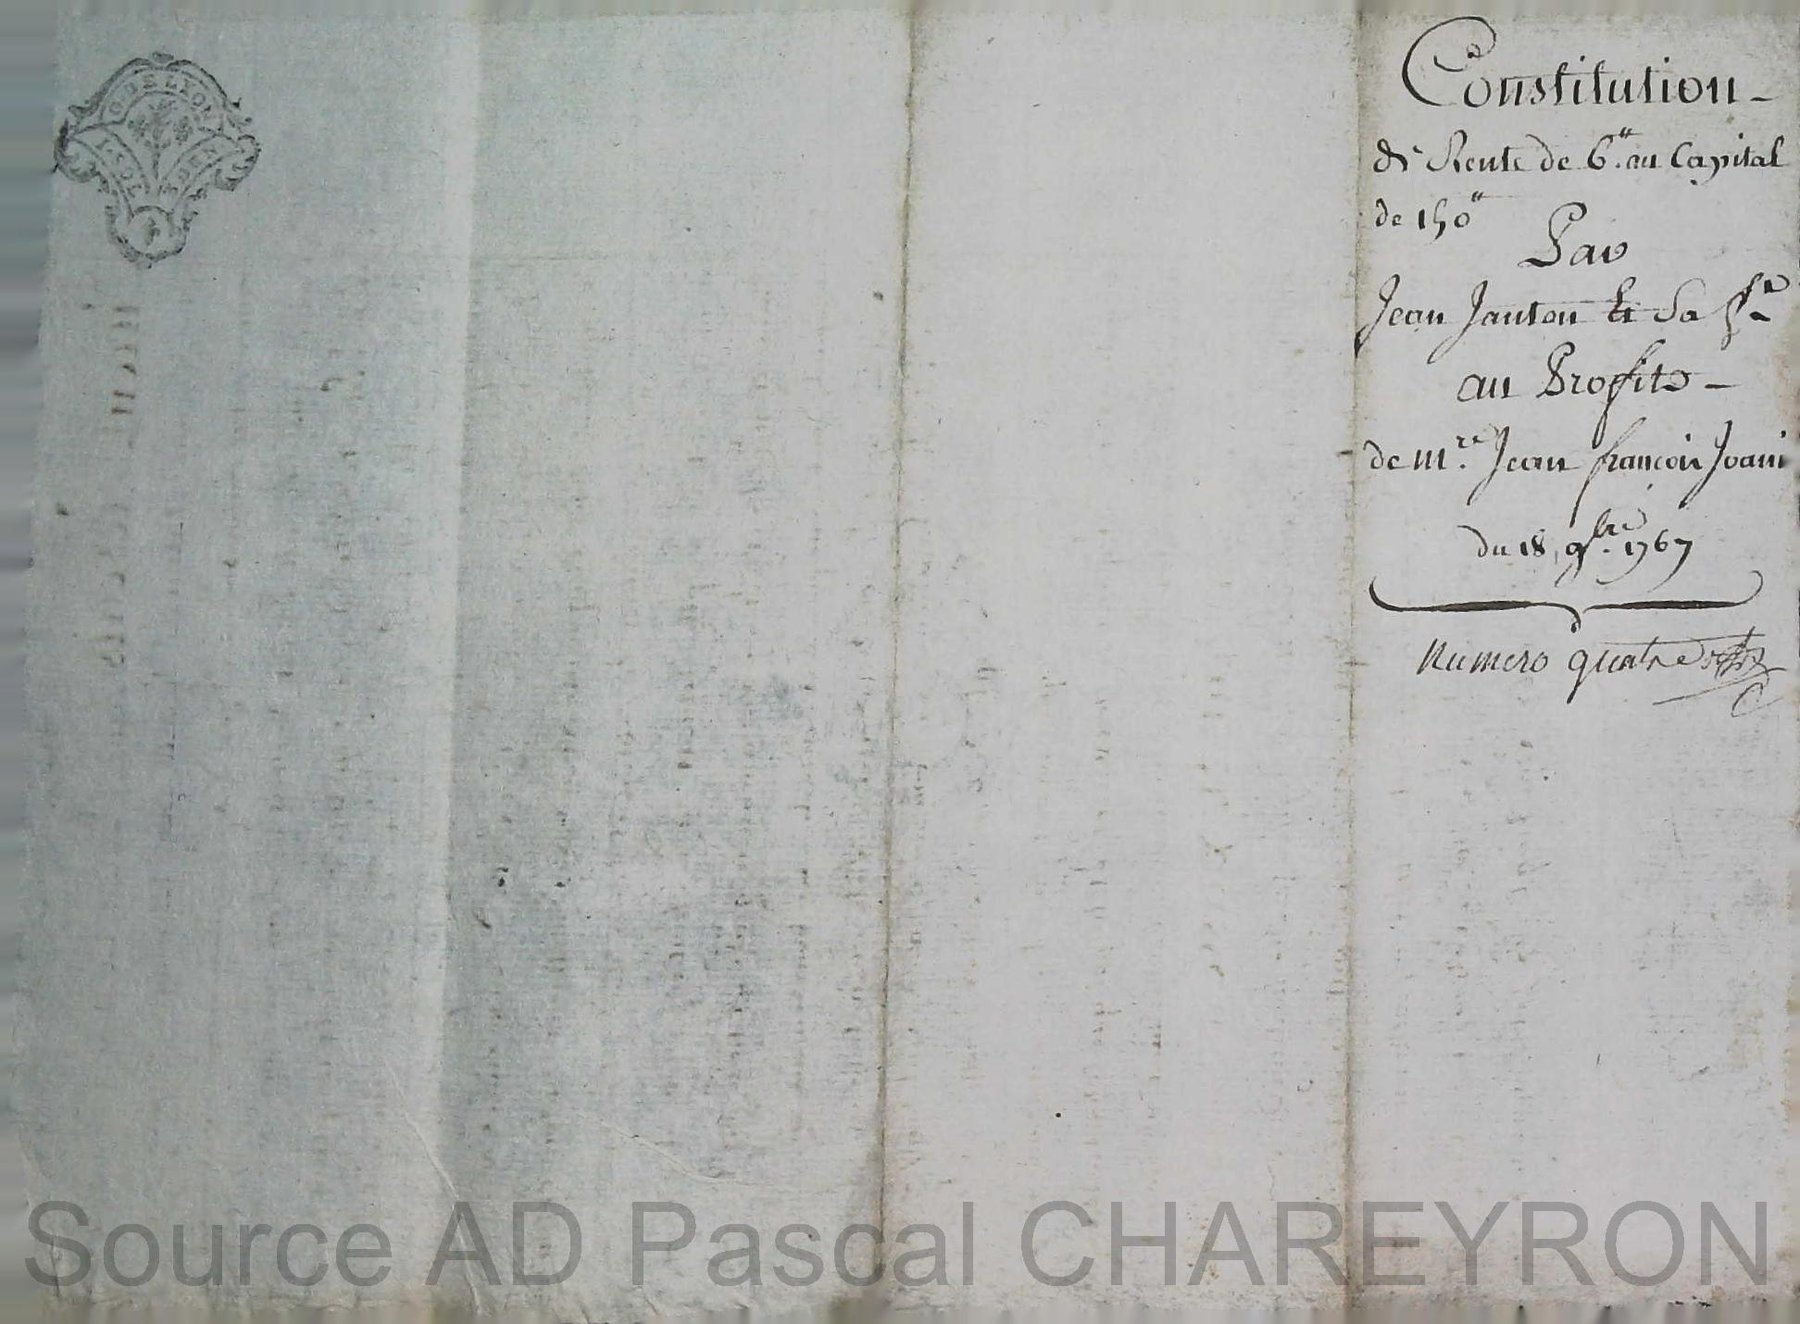 G. DE LYON
Constitution -
de Rente de 6.ʺ au Capital
de 150ʺ
Par
Jean Janton Et Sa fe
au Profits -
de m.re Jean françois Joani
du 18, 9bre. 1767
Numero quatre
Source AD Pascal CHAREYRON